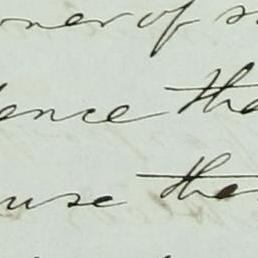 oner of
ence tha
use the